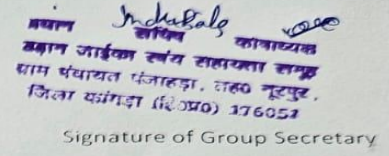 Indubala
प्रधान सचिव कोषाध्यक्ष
जाईका स्वंय सहायता समूह
ग्राम पंचायत पंजाहड़ा, तह० नूरपुर,
जिला कांगड़ा (हि०प्र०) 176051
Signature of Group Secretary